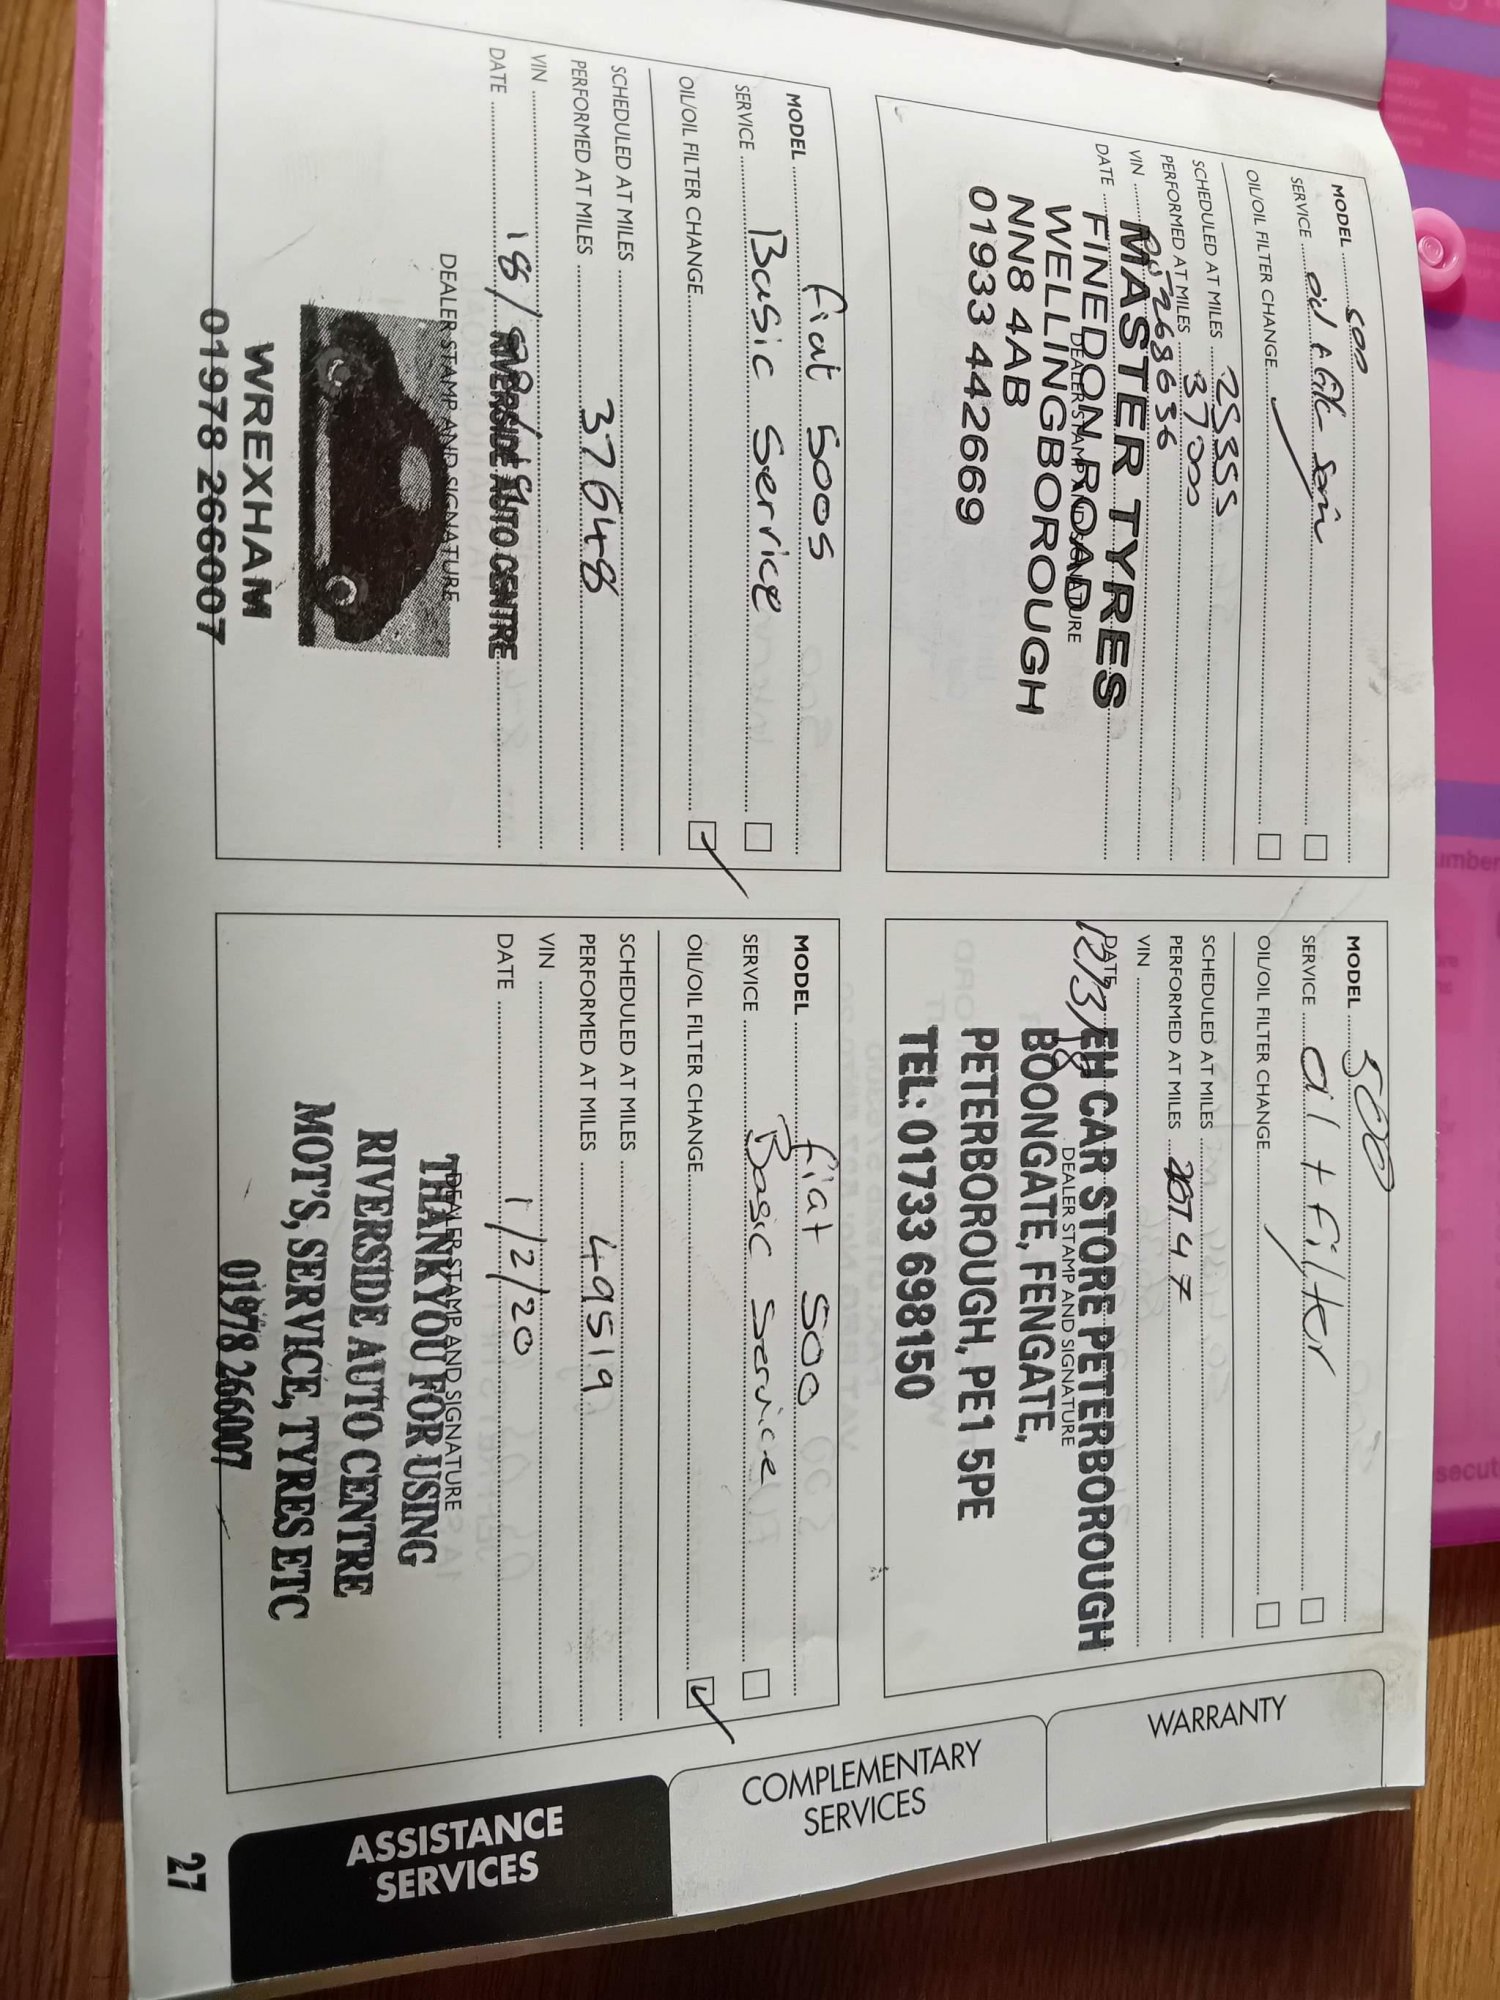 MODEL 500
SERVICE oil & filter
OIL/OIL FILTER CHANGE
SCHEDULED AT MILES 25355
PERFORMED AT MILES 37000
VIN
DATE
MASTER TYRES
FINEDON ROAD
DEALER STAMP AND SIGNATURE
WELLINGBOROUGH
NN8 4AB
01933 442669
MODEL 500
SERVICE oil + filter
OIL/OIL FILTER CHANGE
SCHEDULED AT MILES
PERFORMED AT MILES
VIN
DATE 12/3/18
EH CAR STORE PETERBOROUGH
DEALER STAMP AND SIGNATURE
BOONGATE, FENGATE,
PETERBOROUGH, PE1 5PE
TEL: 01733 698150
MODEL Fiat 500s
SERVICE Basic Service
OIL/OIL FILTER CHANGE
SCHEDULED AT MILES
PERFORMED AT MILES 37648
VIN
DATE 18/
RIVERSIDE AUTO CENTRE
DEALER STAMP AND SIGNATURE
WREXHAM
01978 266007
MODEL Fiat 500
SERVICE Basic Service
OIL/OIL FILTER CHANGE
SCHEDULED AT MILES
PERFORMED AT MILES 49519
VIN
DATE 1/2/20
DEALER STAMP AND SIGNATURE
THANKYOU FOR USING
RIVERSIDE AUTO CENTRE
MOT'S, SERVICE, TYRES ETC
01978 266007
WARRANTY
COMPLEMENTARY
SERVICES
ASSISTANCE
SERVICES
27